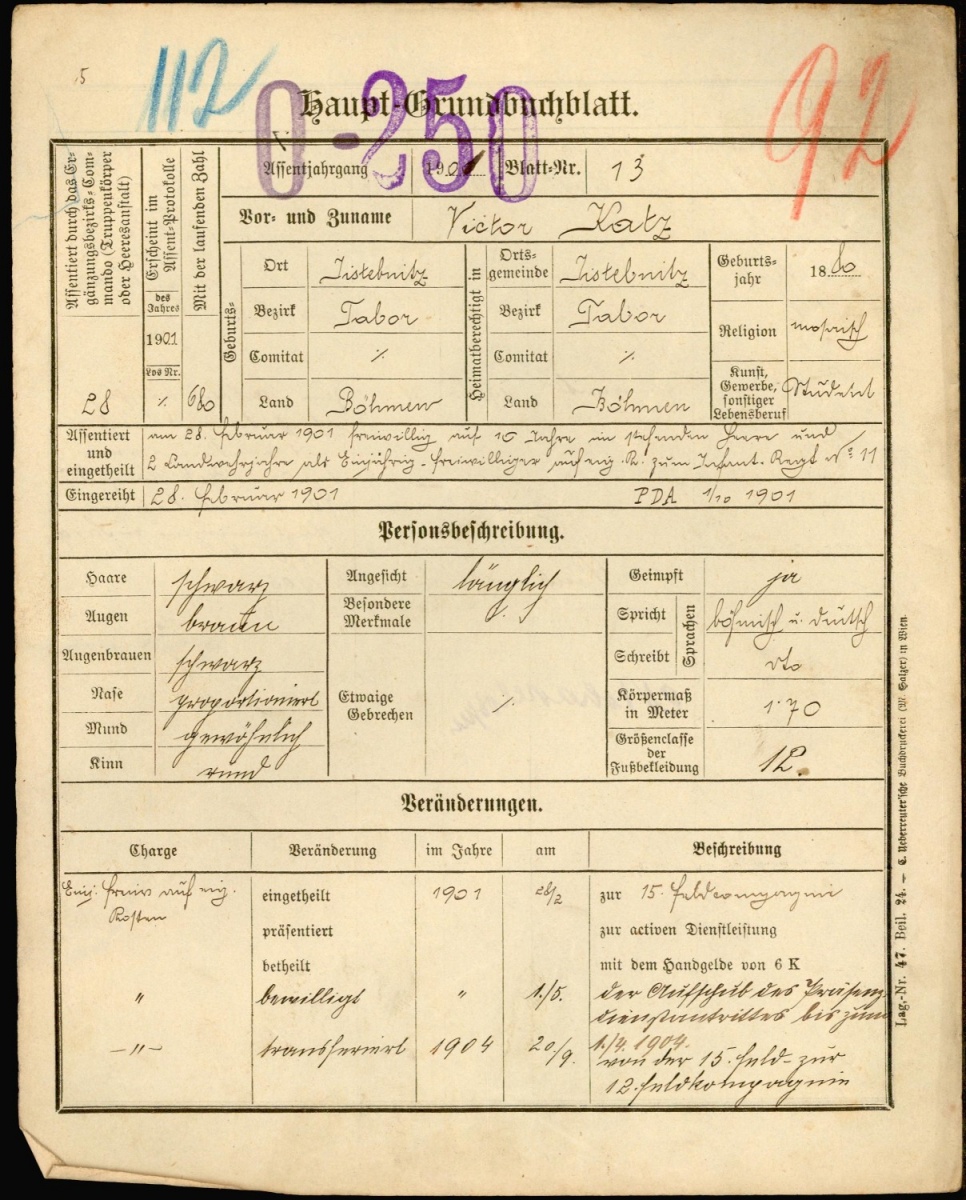 5
112
92
0-250
Haupt-Grundbuchblatt.
Assentiert durch das Ergänzungsbezirks-Commando (Truppenkörper oder Heeresanstalt)
28
Erscheint im Assent-Protokolle
des Jahres
1901
Los Nr.
%
Mit der laufenden Zahl
680
Assentjahrgang 1901 Blatt-Nr. 13
Vor- und Zuname Victor Katz
Geburts-
Ort Jistebnitz
Bezirk Tabor
Comitat %
Land Böhmen
Heimatberechtigt in
Orts-gemeinde Jistebnitz
Bezirk Tabor
Comitat %
Land Böhmen
Geburts-jahr 1880
Religion mosaisch
Kunst, Gewerbe, sonstiger Lebensberuf Student
Assentiert und eingetheilt
am 28. Februar 1901 freiwillig auf 10 Jahre im stehenden Heere und
2 Landwehrjahre als Einjährig-Freiwilliger auf eig. K. zum Infant. Regt № 11
Eingereiht 28. Februar 1901 PDA 1/10 1901
Personsbeschreibung.
Haare schwarz
Augen braun
Augenbrauen schwarz
Nase proportioniert
Mund gewöhnlich
Kinn rund
Angesicht länglich
Besondere Merkmale
Etwaige Gebrechen %
Geimpft ja
Spricht böhmisch u. deutsch
Schreibt dto
Sprachen
Körpermaß in Meter 1·70
Größenclasse der Fußbekleidung 12.
Veränderungen.
Charge Veränderung im Jahre am Beschreibung
Einj. freiw auf eig. eingetheilt 1901 28/2 zur 15. Feldcompagnie
Kosten
präsentiert zur activen Dienstleistung
betheilt mit dem Handgelde von 6 K
" bewilligt " 1./5. der Aufschub des Präsenz-
dienstantrittes bis zum
1./4. 1904.
—"— transferiert 1904 20/9. von der 15. Feld- zur
12. Feldkompagnie
Lag.-Nr. 47. Beil. 24. — C. Ueberreuter'sche Buchdruckerei (M. Salzer) in Wien.